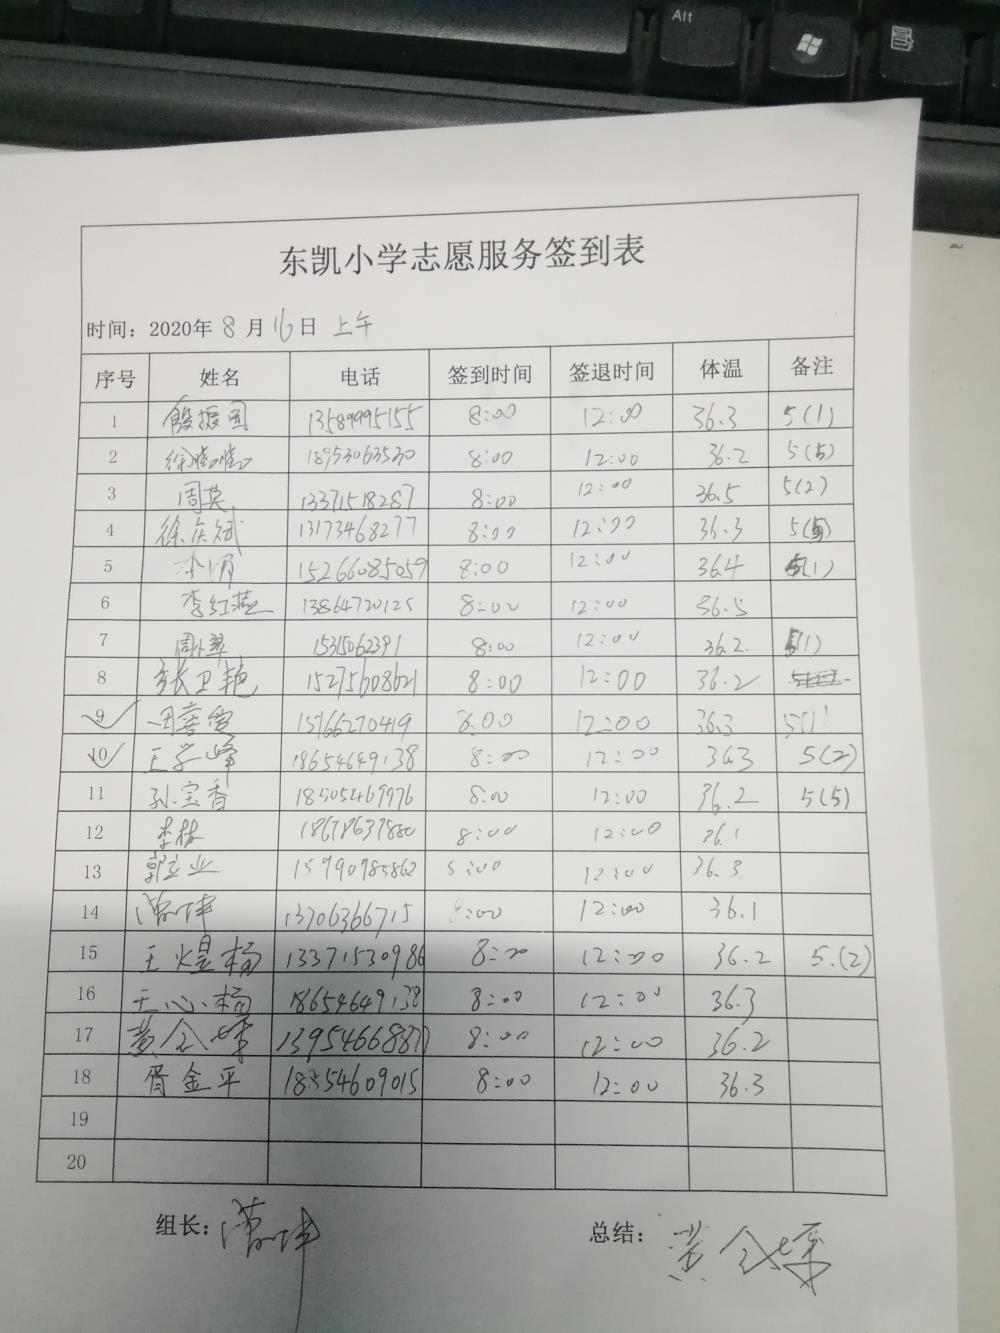 Alt
东凯小学志愿服务签到表
时间：2020年 8 月 16 日 上午
序号 姓名 电话 签到时间 签退时间 体温 备注
1 殷振国 13589995155 8:00 12:00 36.3 5(1)
2 徐晓晓 18953063530 8:00 12:00 36.2 5(5)
3 周英 13371518287 8:00 12:00 36.5 5(2)
4 徐庆斌 13173468277 8:00 12:00 36.3 5(5)
5 李娟 15266085059 8:00 12:00 36.4 5(1)
6 李红燕 13864720125 8:00 12:00 36.5
7 周小翠 15315062391 8:00 12:00 36.2 5(1)
8 张卫艳 15275608621 8:00 12:00 36.2
9 15766270419 8:00 12:00 36.3 5(1)
10 王学峰 18654649138 8:00 12:00 36.3 5(2)
11 孙宝香 18505469976 8:00 12:00 36.2 5(5)
12 李林 18678637880 8:00 12:00 36.1
13 郭立业 15990985862 8:00 12:00 36.3
14 13706366715 8:00 12:00 36.1
15 王煜杨 13371530986 8:00 12:00 36.2 5.(2)
16 王心杨 18654649138 8:00 12:00 36.3
17 黄 13954668877 8:00 12:00 36.2
18 胥金平 18554609015 8:00 12:00 36.3
19
20
组长： 总结： 黄